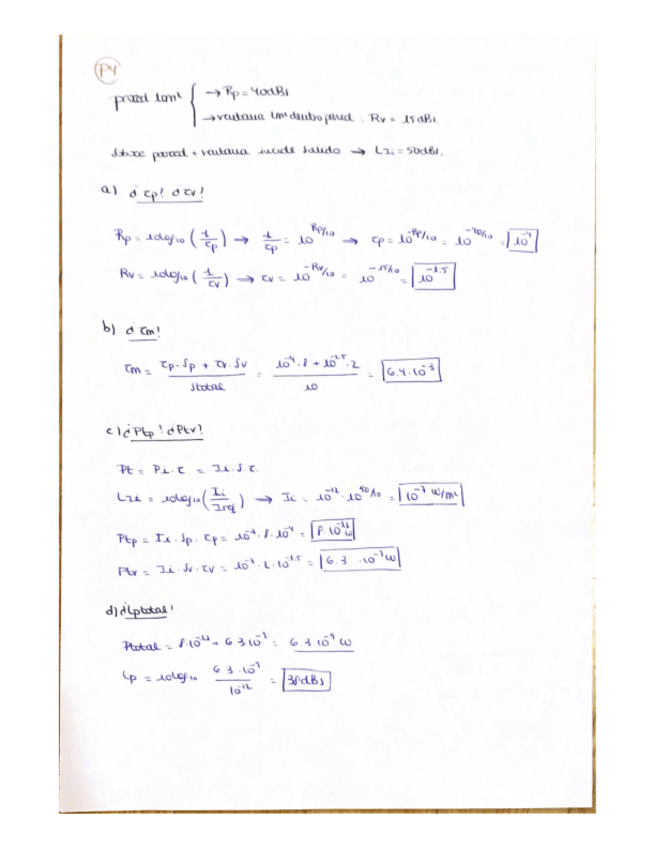 P4
pared 10m² { → Rp = 40dBs
→ ventana 2m² dentro pared. Rv = 15dBs.
Sobre pared + ventana incide ruido → LIi = 50dBs.
a) ¿τp? ¿τv?
Rp = 10log10 (1/τp) → 1/τp = 10^Rp/10 → τp = 10^-Rp/10 = 10^-40/10 = 10^-4
Rv = 10log10 (1/τv) → τv = 10^-Rv/10 = 10^-15/10 = 10^-1.5
b) ¿τm?
τm = (τp · Sp + τv · Sv) / Stotal = (10^-4 · 8 + 10^-1.5 · 2) / 10 = 6.4 · 10^-3
c) ¿Ptp? ¿Ptv?
Pt = Pi · τ = Ii · S · τ
LIi = 10log10 (Ii/Iref) → Ii = 10^-12 · 10^50/10 = 10^-7 W/m²
Ptp = Ii · Sp · τp = 10^-7 · 8 · 10^-4 = 8 · 10^-11 W
Ptv = Ii · Sv · τv = 10^-7 · 2 · 10^-1.5 = 6.3 · 10^-9 W
d) ¿Lptotal?
Ptotal = 8 · 10^-11 + 6.3 · 10^-9 = 6.3 · 10^-9 W
Lp = 10log10 6.3 · 10^-9 / 10^-12 = 38dBs